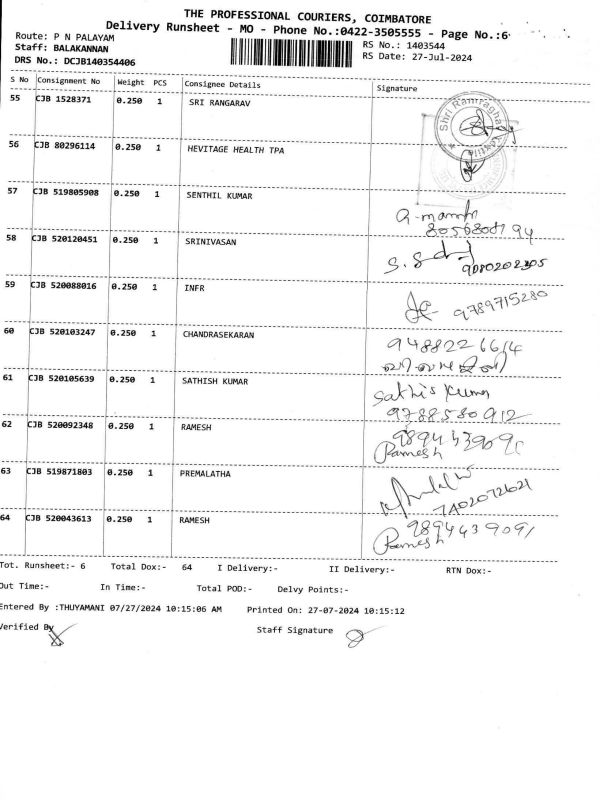 THE PROFESSIONAL COURIERS, COIMBATORE
Delivery Runsheet - MO - Phone No.:0422-3505555 - Page No.:6
Route: P N PALAYAM
Staff: BALAKANNAN
DRS No.: DCJB140354406
RS No.: 1403544
RS Date: 27-Jul-2024
S No Consignment No Weight PCS Consignee Details Signature
55 CJB 1528371 0.250 1 SRI RANGARAV
Shri
56 CJB 80296114 0.250 1 HEVITAGE HEALTH TPA
57 CJB 519805908 0.250 1 SENTHIL KUMAR
58 CJB 520120451 0.250 1 SRINIVASAN
9080202305
59 CJB 520088016 0.250 1 INFR
9789715280
60 CJB 520103247 0.250 1 CHANDRASEKARAN
9488226614
61 CJB 520105639 0.250 1 SATHISH KUMAR
Sathis Kumar
9788580912
62 CJB 520092348 0.250 1 RAMESH
Ramesh
63 CJB 519871803 0.250 1 PREMALATHA
7402072621
64 CJB 520043613 0.250 1 RAMESH
9894439091
Ramesh
Tot. Runsheet:- 6 Total Dox:- 64 I Delivery:- II Delivery:- RTN Dox:-
Out Time:- In Time:- Total POD:- Delvy Points:-
Entered By :THUYAMANI 07/27/2024 10:15:06 AM Printed On: 27-07-2024 10:15:12
Verified By Staff Signature